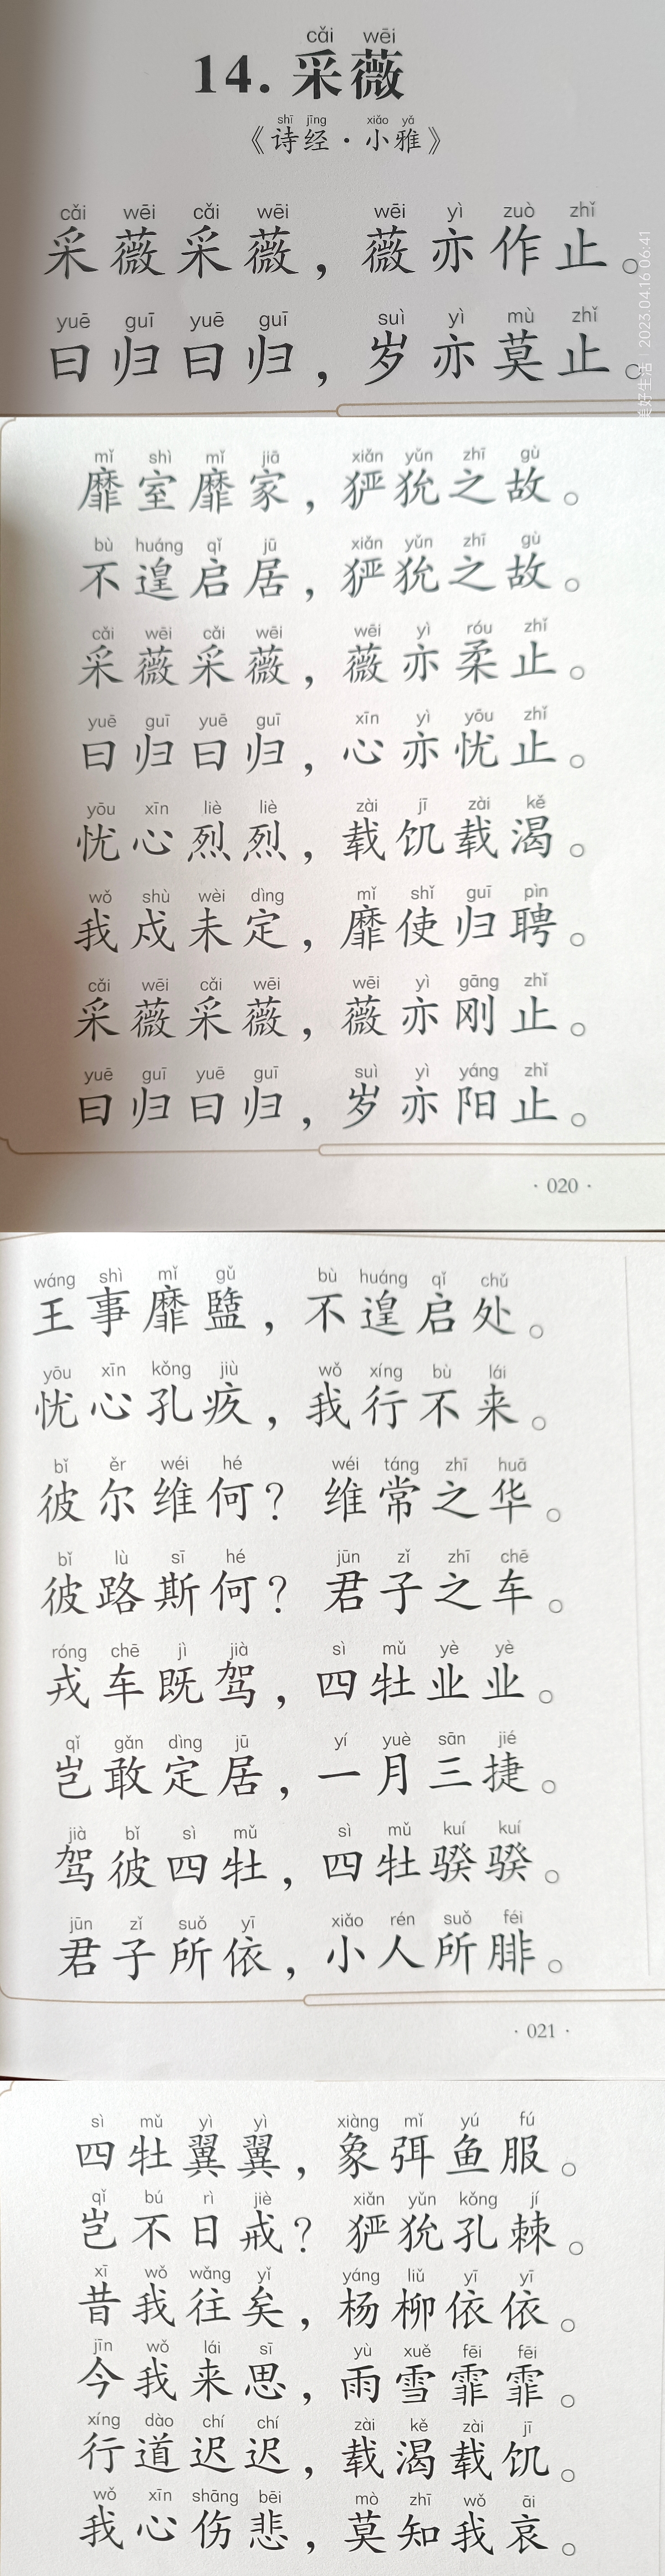 cǎi wēi
14. 采薇
shī jīng xiǎo yǎ
《诗经·小雅》
cǎi wēi cǎi wēi wēi yì zuò zhǐ
采薇采薇，薇亦作止。
yuē guī yuē guī suì yì mù zhǐ
曰归曰归，岁亦莫止。
美好生活 | 2023.04.16 06:41
mǐ shì mǐ jiā xiǎn yǔn zhī gù
靡室靡家，猃狁之故。
bù huáng qǐ jū xiǎn yǔn zhī gù
不遑启居，猃狁之故。
cǎi wēi cǎi wēi wēi yì róu zhǐ
采薇采薇，薇亦柔止。
yuē guī yuē guī xīn yì yōu zhǐ
曰归曰归，心亦忧止。
yōu xīn liè liè zài jī zài kě
忧心烈烈，载饥载渴。
wǒ shù wèi dìng mǐ shǐ guī pìn
我戍未定，靡使归聘。
cǎi wēi cǎi wēi wēi yì gāng zhǐ
采薇采薇，薇亦刚止。
yuē guī yuē guī suì yì yáng zhǐ
曰归曰归，岁亦阳止。
· 020 ·
wáng shì mǐ gǔ bù huáng qǐ chǔ
王事靡盬，不遑启处。
yōu xīn kǒng jiù wǒ xíng bù lái
忧心孔疚，我行不来。
bǐ ěr wéi hé wéi táng zhī huā
彼尔维何？维常之华。
bǐ lù sī hé jūn zǐ zhī chē
彼路斯何？君子之车。
róng chē jì jià sì mǔ yè yè
戎车既驾，四牡业业。
qǐ gǎn dìng jū yí yuè sān jié
岂敢定居，一月三捷。
jià bǐ sì mǔ sì mǔ kuí kuí
驾彼四牡，四牡骙骙。
jūn zǐ suǒ yī xiǎo rén suǒ féi
君子所依，小人所腓。
· 021 ·
sì mǔ yì yì xiàng mǐ yú fú
四牡翼翼，象弭鱼服。
qǐ bú rì jiè xiǎn yǔn kǒng jí
岂不日戒？猃狁孔棘。
xī wǒ wǎng yǐ yáng liǔ yī yī
昔我往矣，杨柳依依。
jīn wǒ lái sī yù xuě fēi fēi
今我来思，雨雪霏霏。
xíng dào chí chí zài kě zài jī
行道迟迟，载渴载饥。
wǒ xīn shāng bēi mò zhī wǒ āi
我心伤悲，莫知我哀。